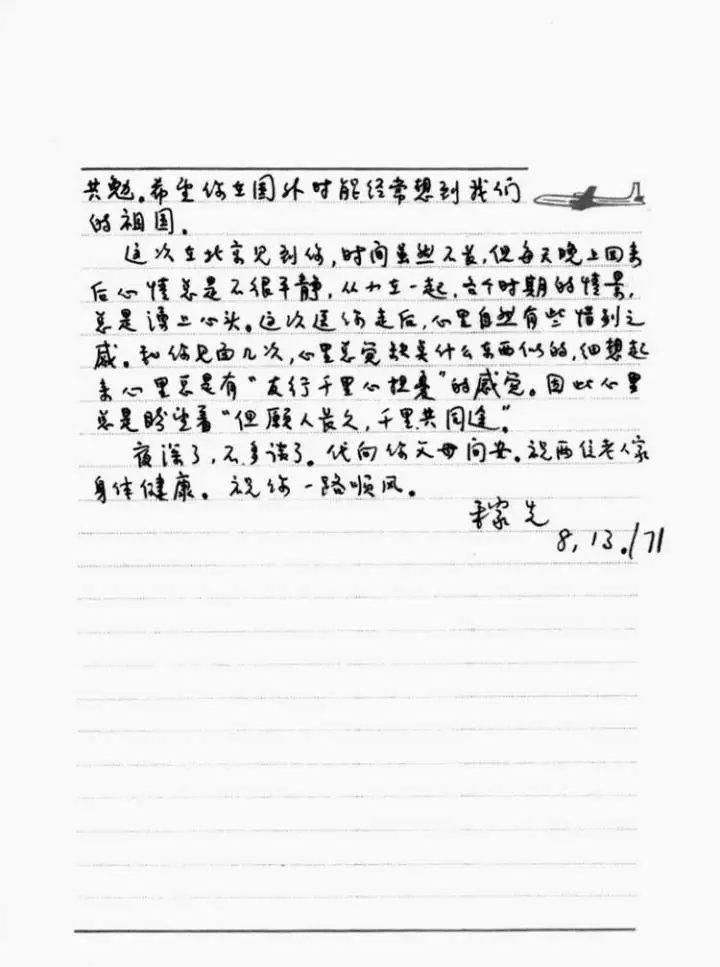 共勉。希望你在国外时能经常想到我们
的祖国。
这次在北京见到你，时间虽然不长，但每天晚上回来
后心情总是不很平静，从小在一起，各个时期的情景，
总是涌上心头。这次送你走后，心里自然有些惜别之
感。和你见面几次，心里总觉缺真什么东西似的，细想起
来心里总是有“友行千里心担忧”的感觉。因此心里
总是盼望着“但愿人长久，千里共同途”。
夜深了，不多谈了。代向你父母问安。祝两位老人家
身体健康。祝你一路顺风。
稼先
8，13./71